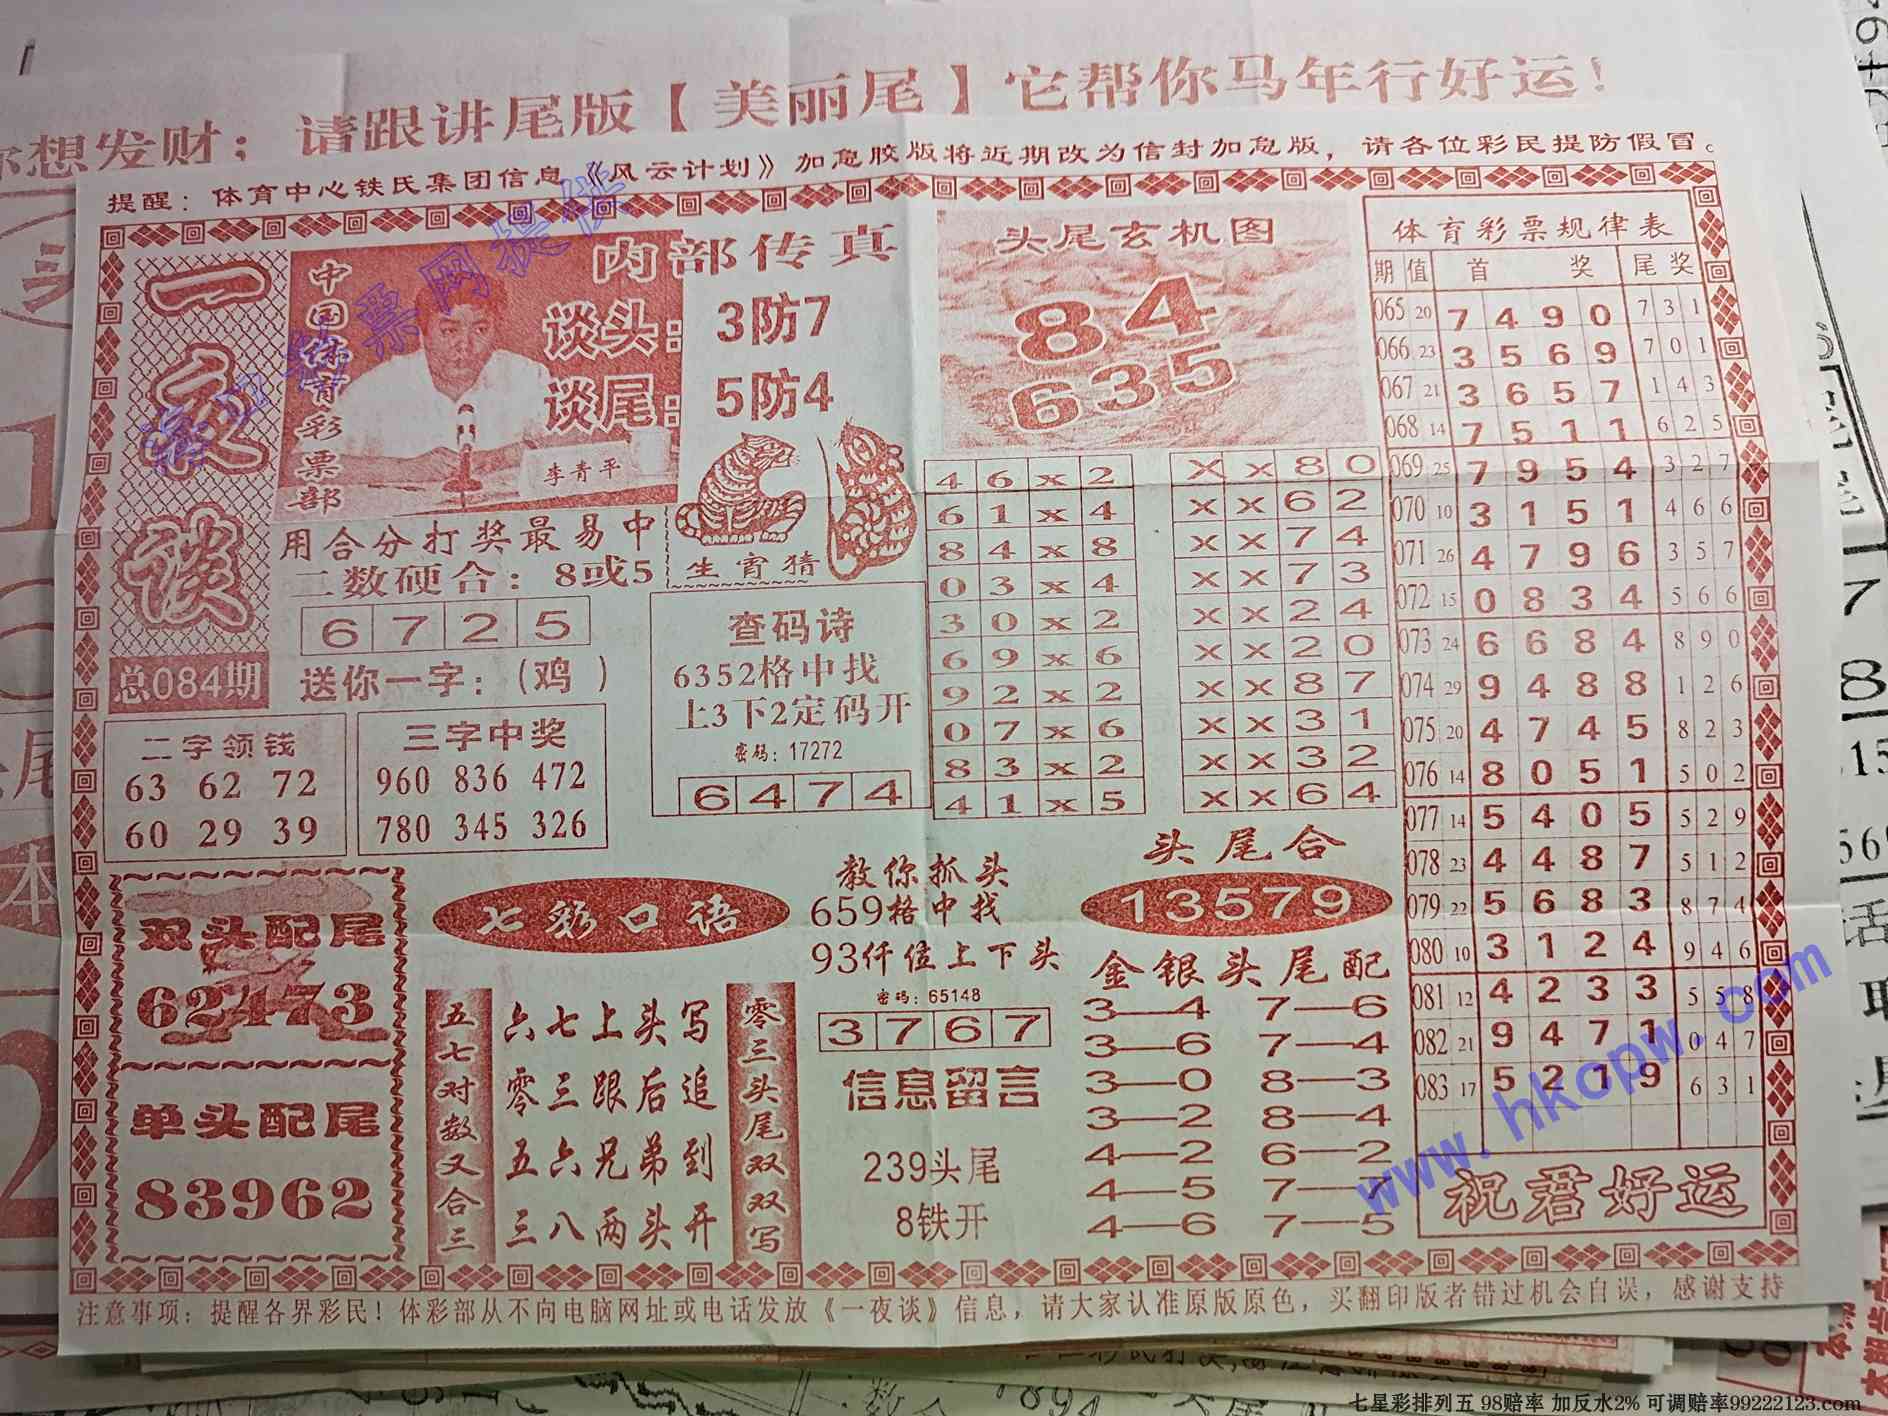 你想发财；请跟讲尾版【美丽尾】它帮你马年行好运！
提醒：体育中心铁氏集团信息《风云计划》加急胶版将近期改为信封加急版，请各位彩民提防假冒。
一夜谈
总084期
中国体育彩票部
内部传真
谈头：3防7
谈尾：5防4
李青平
生宵猜
用合分打奖最易中
二数硬合：8或5
6 7 2 5
送你一字：（鸡）
二字领钱
63 62 72
60 29 39
三字中奖
960 836 472
780 345 326
查码诗
6352格中找
上3下2定码开
密码：17272
6 4 7 4
头尾玄机图
84
635
4 6 x 2
6 1 x 4
8 4 x 8
0 3 x 4
3 0 x 2
6 9 x 6
9 2 x 2
0 7 x 6
8 3 x 2
4 1 x 5
X X 8 0
X X 6 2
X X 7 4
X X 7 3
X X 2 4
X X 2 0
X X 8 7
X X 3 1
X X 3 2
X X 6 4
双头配尾
62473
单头配尾
83962
七彩口语
五七对数又合三
六七上头写
零三跟后追
五六兄弟到
三八两头开
零三头尾双双写
教你抓头
659格中找
93仟位上下头
密码：65148
3 7 6 7
信息留言
239头尾
8铁开
头尾合
13579
金银头尾配
3—4 7—6
3—6 7—4
3—0 8—3
3—2 8—4
4—2 6—2
4—5 7—7
4—6 7—5
体育彩票规律表
期 值 首 奖 尾 奖
065 20 7 4 9 0 7 3 1
066 23 3 5 6 9 7 0 1
067 21 3 6 5 7 1 4 3
068 14 7 5 1 1 6 2 5
069 25 7 9 5 4 3 2 7
070 10 3 1 5 1 4 6 6
071 26 4 7 9 6 3 5 7
072 15 0 8 3 4 5 6 6
073 24 6 6 8 4 8 9 0
074 29 9 4 8 8 1 2 6
075 20 4 7 4 5 8 2 3
076 14 8 0 5 1 5 0 2
077 14 5 4 0 5 5 2 9
078 23 4 4 8 7 5 1 2
079 22 5 6 8 3 8 7 4
080 10 3 1 2 4 9 4 6
081 12 4 2 3 3 5 5 8
082 21 9 4 7 1 0 4 7
083 17 5 2 1 9 6 3 1
祝君好运
注意事项：提醒各界彩民！体彩部从不向电脑网址或电话发放《一夜谈》信息，请大家认准原版原色，买翻印版者错过机会自误，感谢支持
www.hkcpw.com
七星彩排列五 98赔率 加反水2% 可调赔率99222123.com